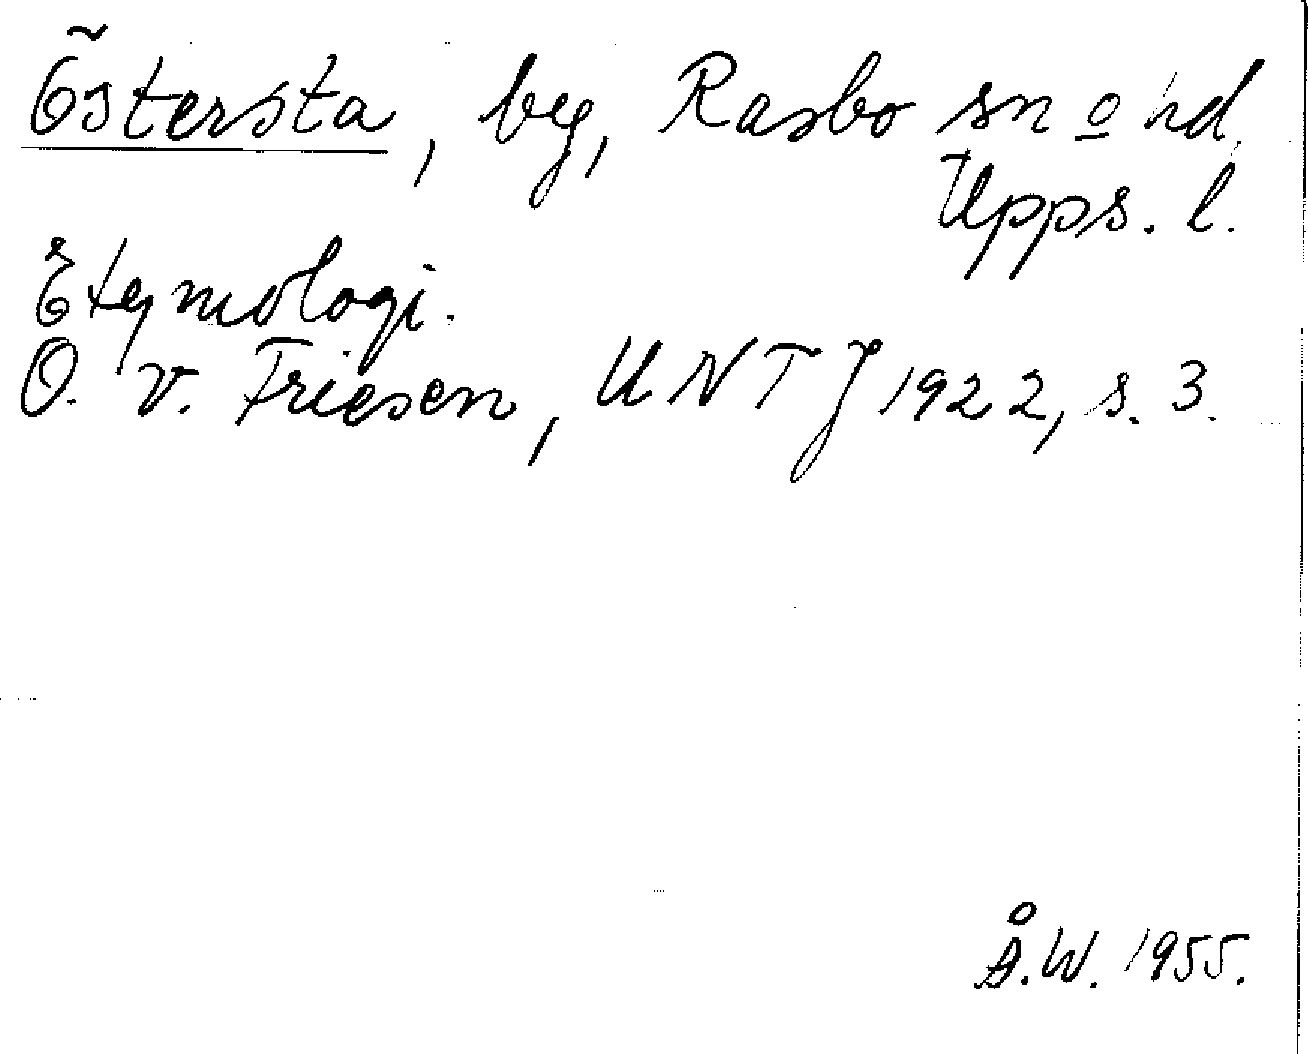 Östersta, by, Rasbo sn o hd,
Upps. l.
Etymologi.
O. v. Friesen, UNT J 1922, s. 3.
Å.W. 1955.